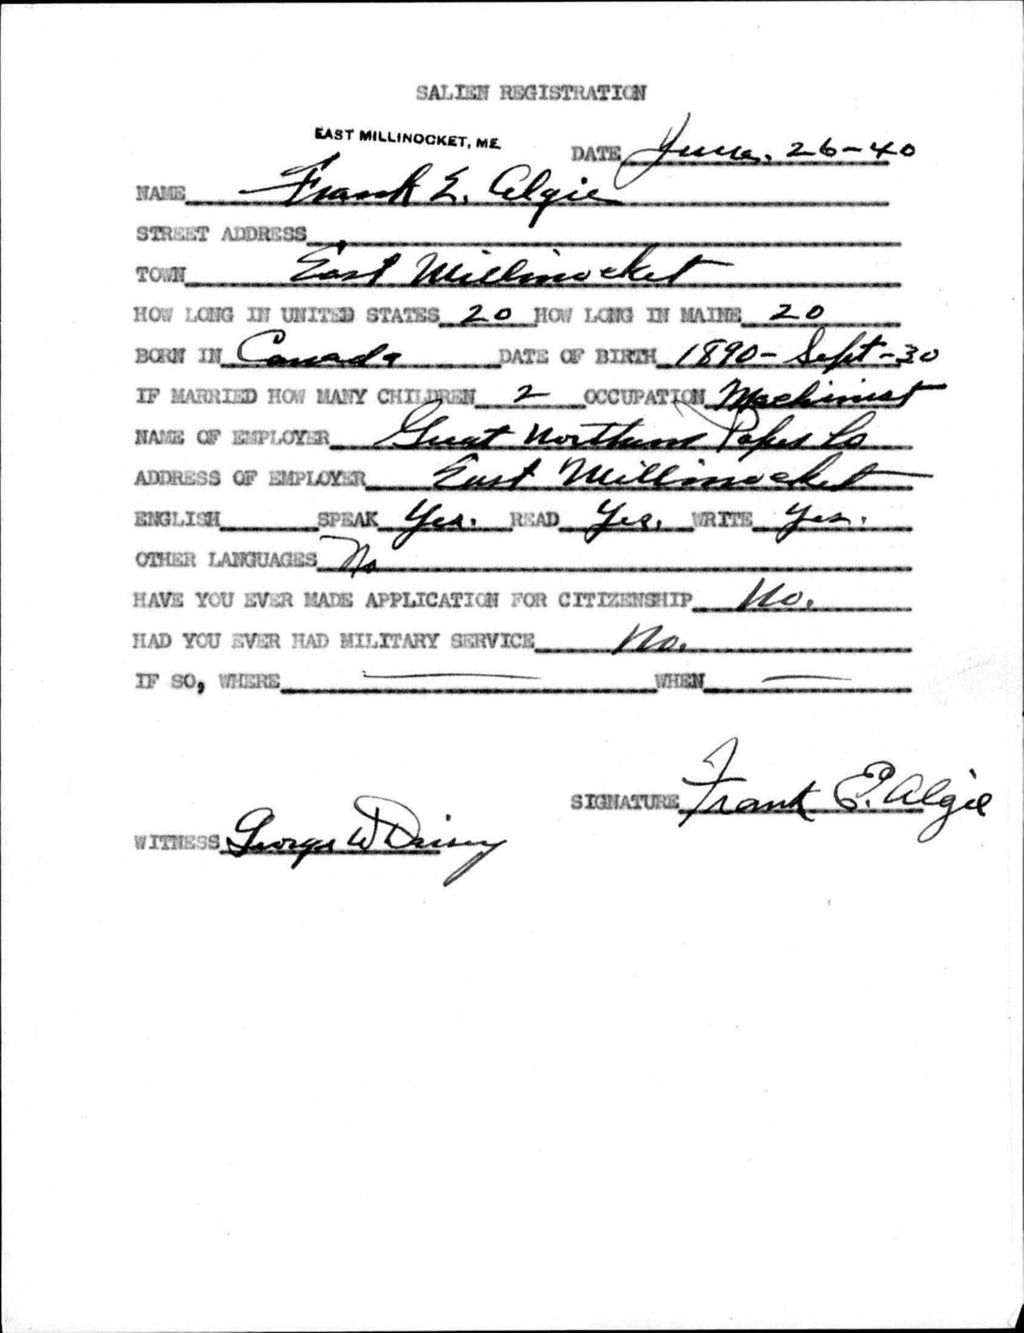 SALIEN REGISTRATION
EAST MILLINOCKET, ME.
DATE June. 26-40
NAME Frank E. Algie
STREET ADDRESS
TOWN East Millinocket
HOW LONG IN UNITED STATES 20 HOW LONG IN MAINE 20
BORN IN Canada DATE OF BIRTH 1890- Sept-30
IF MARRIED HOW MANY CHILDREN 2 OCCUPATION Machinist
NAME OF EMPLOYER Great Northern Paper Co
ADDRESS OF EMPLOYER East Millinocket
ENGLISH SPEAK Yes. READ Yes. WRITE Yes.
OTHER LANGUAGES No
HAVE YOU EVER MADE APPLICATION FOR CITIZENSHIP No.
HAD YOU EVER HAD MILITARY SERVICE No.
IF SO, WHERE — WHEN —
SIGNATURE Frank E. Algie
WITNESS George W Daisey